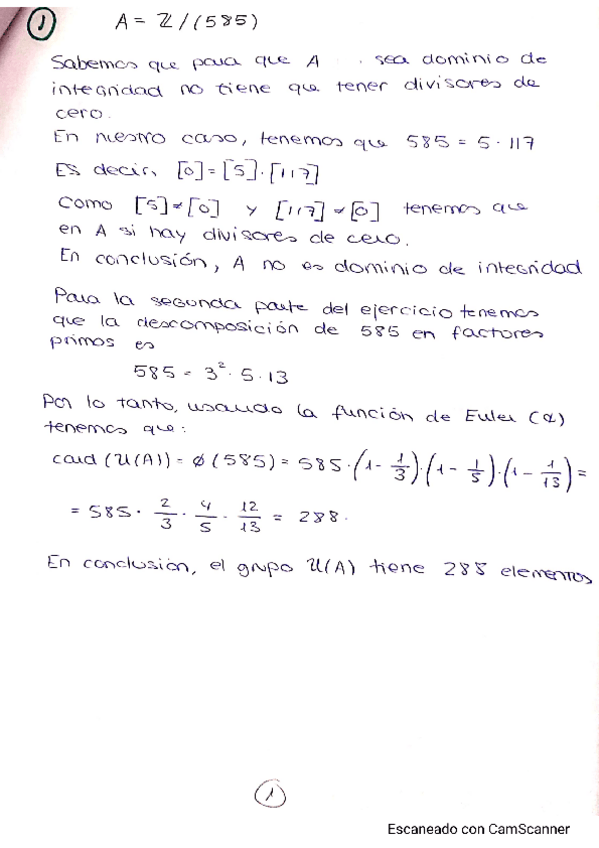 1 A = ℤ/(585)
Sabemos que para que A sea dominio de
integridad no tiene que tener divisores de
cero.
En nuestro caso, tenemos que 585 = 5·117
Es decir, [0] = [5]·[117]
Como [5] ≠ [0] y [117] ≠ [0] tenemos que
en A si hay divisores de cero.
En conclusión, A no es dominio de integridad
Para la segunda parte del ejercicio tenemos
que la descomposición de 585 en factores
primos es
585 = 3²·5·13
Por lo tanto, usando la función de Euler (α)
tenemos que:
card (U(A)) = ø(585) = 585·(1 - 1/3)·(1 - 1/5)·(1 - 1/13) =
= 585 · 2/3 · 4/5 · 12/13 = 288.
En conclusión, el grupo U(A) tiene 288 elementos
1
Escaneado con CamScanner